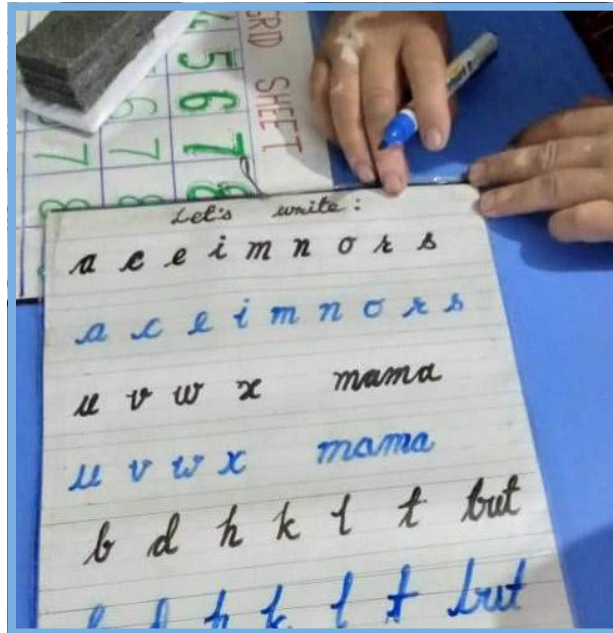 GRID SHEET
4
5 6 7 8
6 7 8
7 8
Let's write:
a c e i m n o r s
a c e i m n o r s
u v w x mama
u v w x mama
b d h k l t but
b d h k l t but